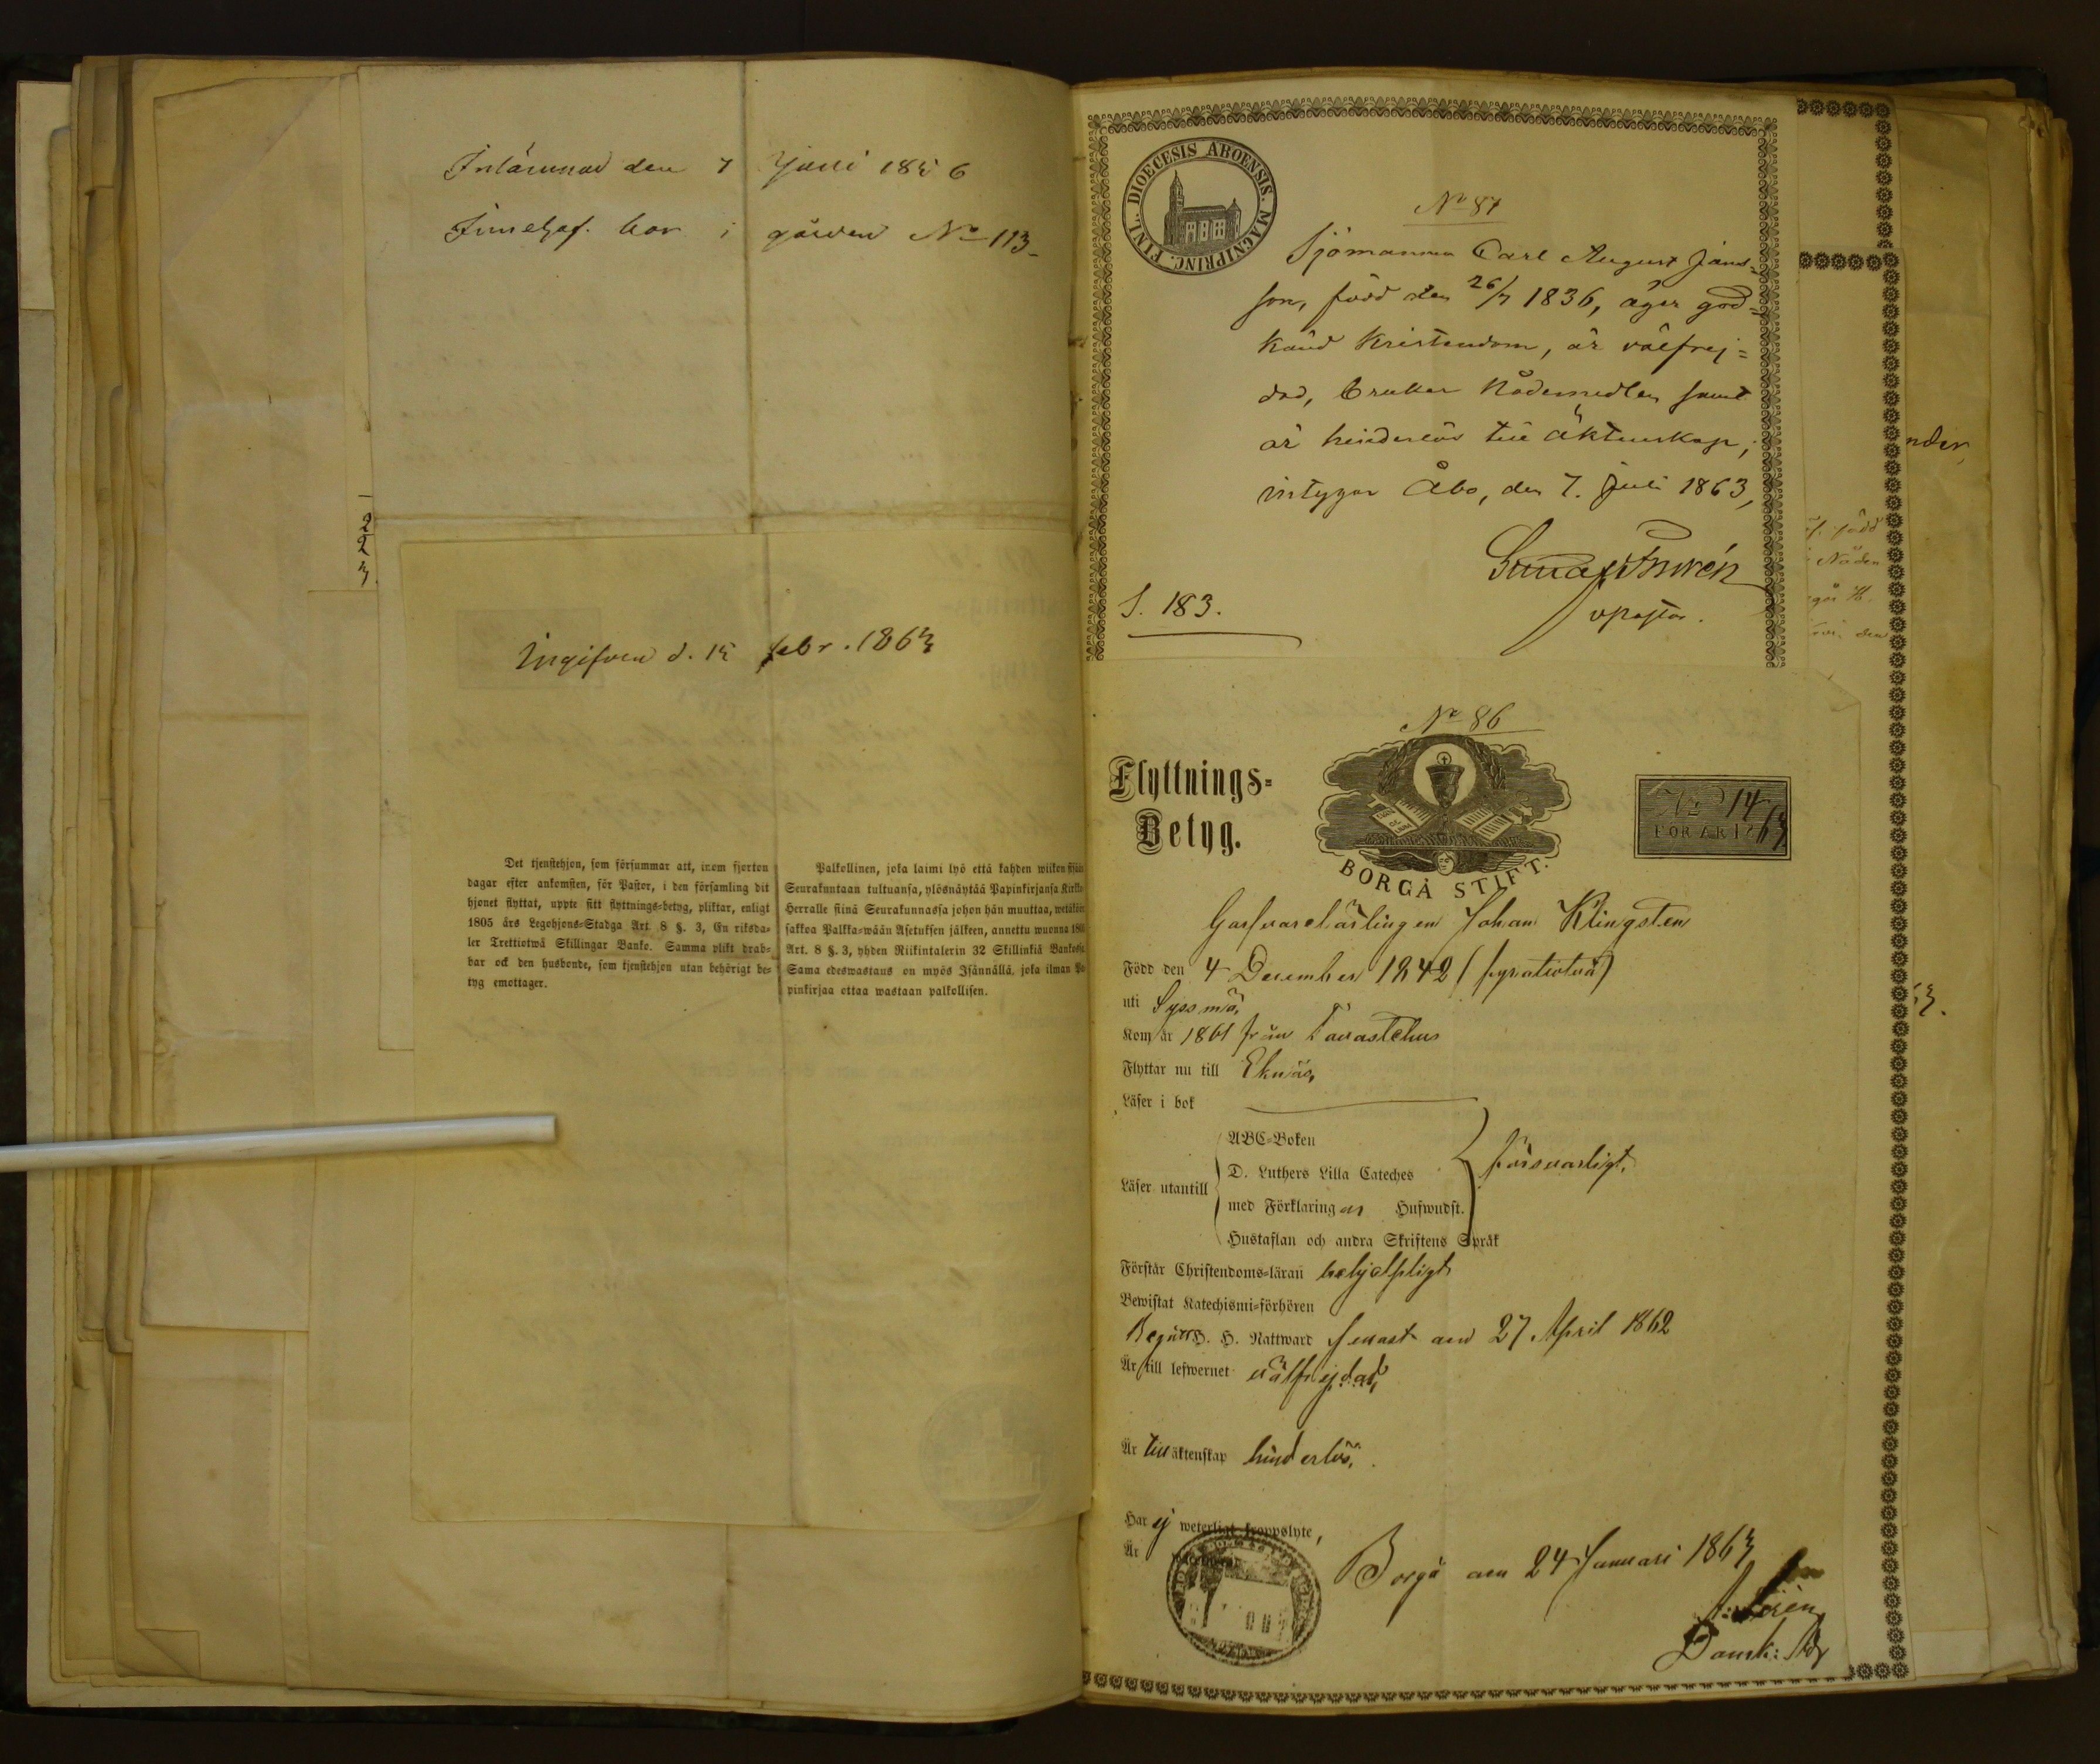 Inlämnad den 7 Juni 1856
bor i gården No 113-
1223
Ingifven d. 15 febr. 1863
Det tjenstehjon, som försummar att, inom fjorton
dagar efter ankomsten, för Pastor, i den församling dit
hjonet flyttat, uppte sitt flyttnings=betyg, pliktar, enligt
1805 års Legohjons=Stadga Art 8 §. 3, En riksda=
ler Trettiotwå Skillingar Banko. Samma plikt drab=
bar ock den husbonde, som tjenstehjon utan behörigt be=
tyg emottager.
Palkollinen, joka laimi lyö että kahden wiikon
Seurakuntaan tultuansa, ylösnäytää Papinkirjansa Kirkko
Herralle siinä Seurakunnassa johon hän muuttaa,
sakkoa Palkka=wään Asetuksen jälkeen, annettu wuonna 180
Art. 8 §. 3, yhden Riikintalerin 32 Skillinkiä Bankossa
Sama edeswastaus on myös Isännällä, joka ilman Pa
pinkirjaa ottaa wastaan palkollisen.
FINL. DIOECESIS ABOENSIS. MAGNIPRINC.
No 87
Sjömannen Carl August Jans=
son, född den 26/7 1836, äger god=
känd Kristendom, är välfrej=
dad, brukar Nådemedlen samt
är hinderlös till Äktenskap,
intygar Åbo, den 7. Juli 1863,
vpastor.
S. 183.
No 86
Flyttnings=
Betyg.
BORGÅ STIFT.
No 14
FÖR ÅR 1863
Garfvarelärlingen Johan Klingsten
Född den 4 December 1842 (fyratiotvå)
uti Syssmä,
Kom år 1861 från Tavastehus
Flyttar nu till Eknäs,
Läser i bok
ABC=Boken
D. Luthers Lilla Cateches
försvarligt.
Läser utantill
med Förklaringar Hufwudst.
Hustaflan och andra Skriftens Språk
Förstår Christendoms=läran behjelpligt
Bewistat Katechismi=förhören
Begått H. H. Nattward senast den 27 April 1862
Är till lefwernet välfrejdad,
Är till äktenskap hinderlös.
Har ej weterligt kroppslyte,
Är
Borgå den 24 Januari 1863
nder,
född
Nåden
den
63.